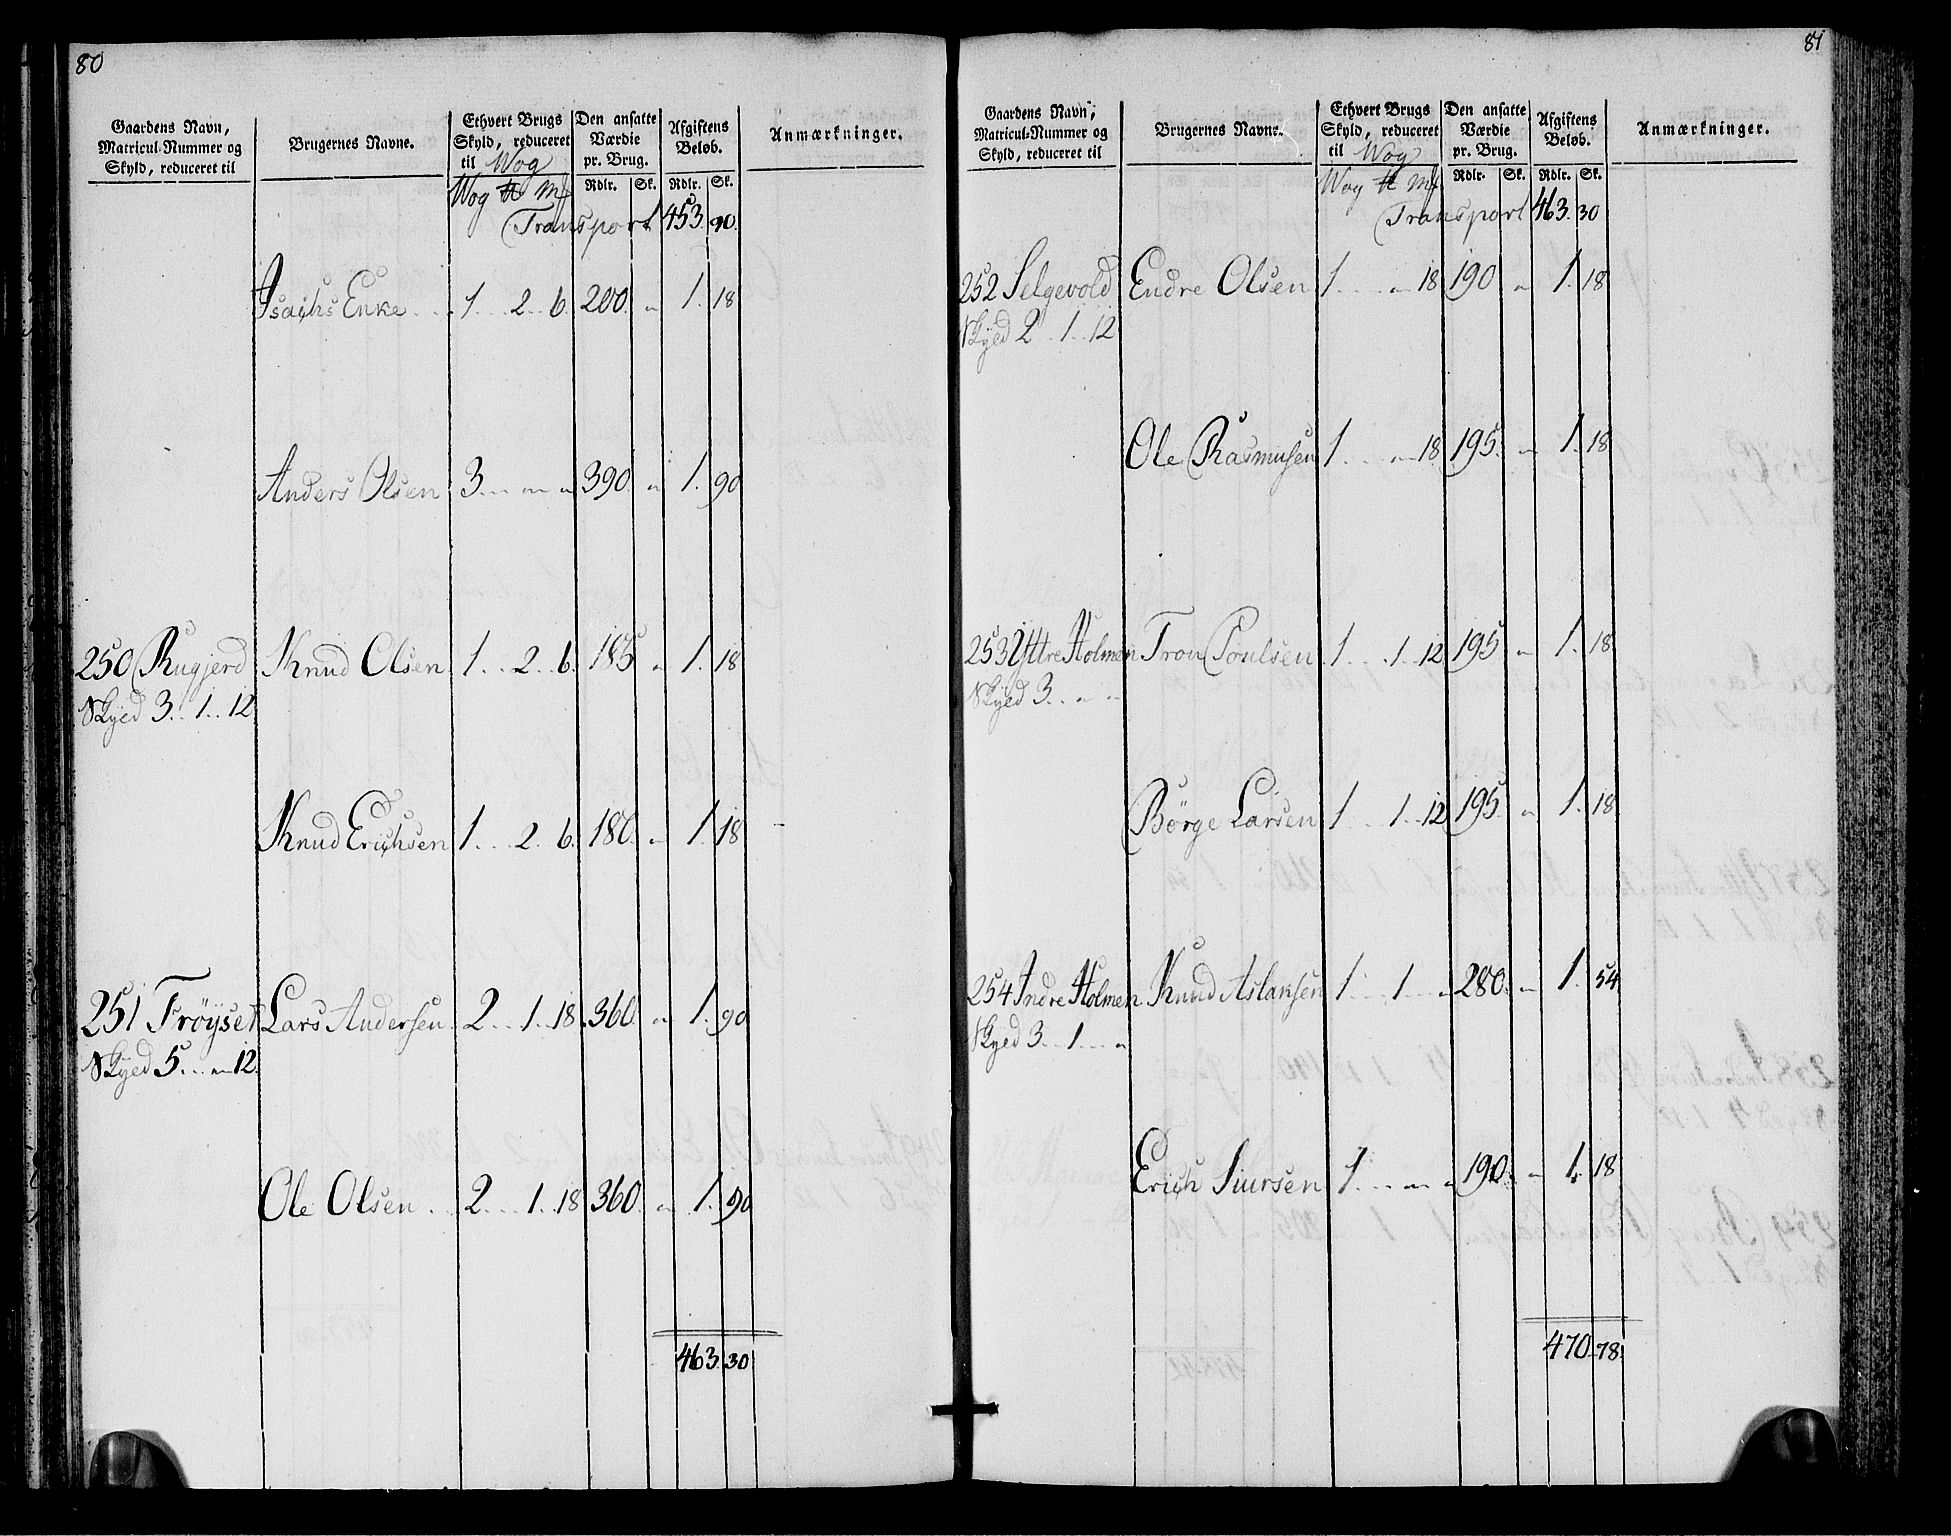 80
Gaardens Navn, Matricul-Nummer og Skyld, reduceret til
Brugernes Navne.
Ethvert Brugs Skyld, reduceret til Wog
Den ansatte Værdie pr. Brug.
Afgiftens Beløb.
Anmærkninger.
Wog ℔ Mk Rdlr. Sk. Rdlr. Sk.
Transport 453. 90.
Isachs Enke 1 2 6. 200. „ 1. 18
Anders Olsen 3 „ „ 390. „ 1. 90
250 Rugjerd Knud Olsen 1 2 6. 185 „ 1. 18
Skyed 3 1 12
Knud Erichsen 1 2 6. 180. „ 1. 18
251 Frøyset Lars Andersen 2 1 18. 360. „ 1. 90
Skyed 5 „ 12.
Ole Olsen 2 1 18 360. „ 1. 90
463. 30
81
Gaardens Navn, Matricul-Nummer og Skyld, reduceret til
Brugernes Navne.
Ethvert Brugs Skyld, reduceret til Wog
Den ansatte Værdie pr. Brug.
Afgiftens Beløb.
Anmærkninger.
Wog ℔ Mk Rdlr. Sk. Rdlr. Sk.
Transport 463. 30
252 Selgevold Endre Olsen 1 „ 18 190 „ 1. 18
Skyed 2 1 12
Ole Rasmusen 1 „ 18 195. „ 1. 18
253 Yttre Holmen Tron Poulsen 1 1 12 195 „ 1. 18
Skyed 3 „ „
Börge Larsen 1 1 12 195. „ 1. 18
254 Indre Holmen Knud Aslaksen 1 1 „ 280. „ 1. 54
Skyed 3 1 „
Erich Siursen 1 „ „ 190. „ 1. 18
470. 78.